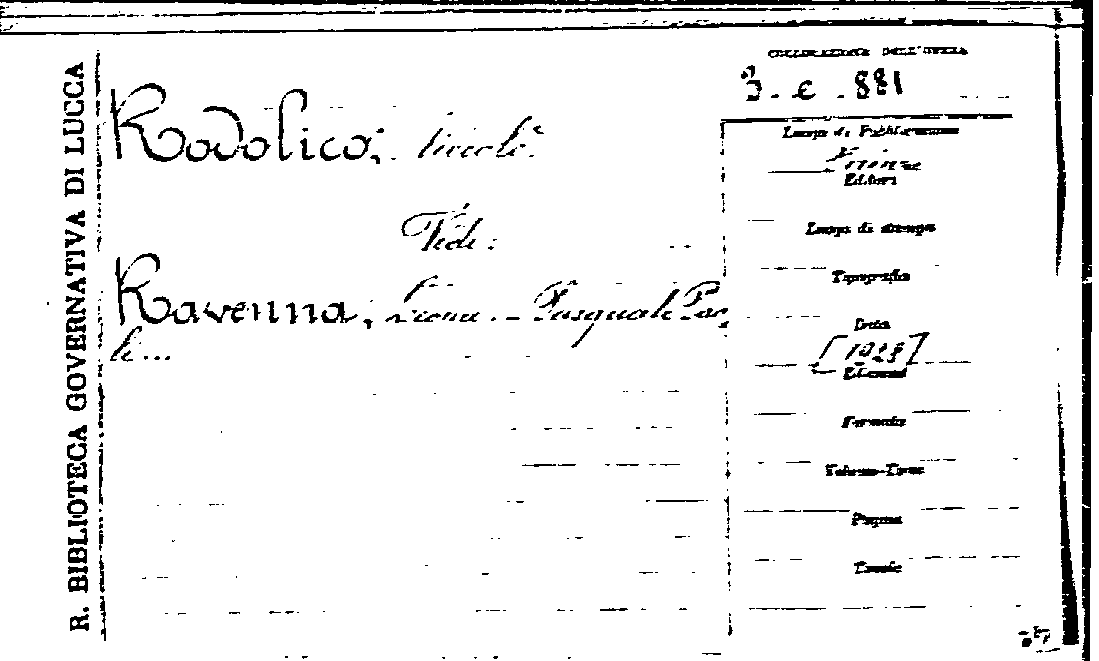 R. BIBLIOTECA GOVERNATIVA DI LUCCA
COLLOCAZIONE DELL'OPERA
3. C. 881
Rodolico, Niccolò.
Vedi:
Ravenna, Leona.. - Pasquale Pao
li...
Luogo di Pubblicazione
Firenze
Editori
Luogo di stampa
Tipografia
Data
[1928]
Edizioni
Formato
Volume-Tomo
Pagine
Tavole